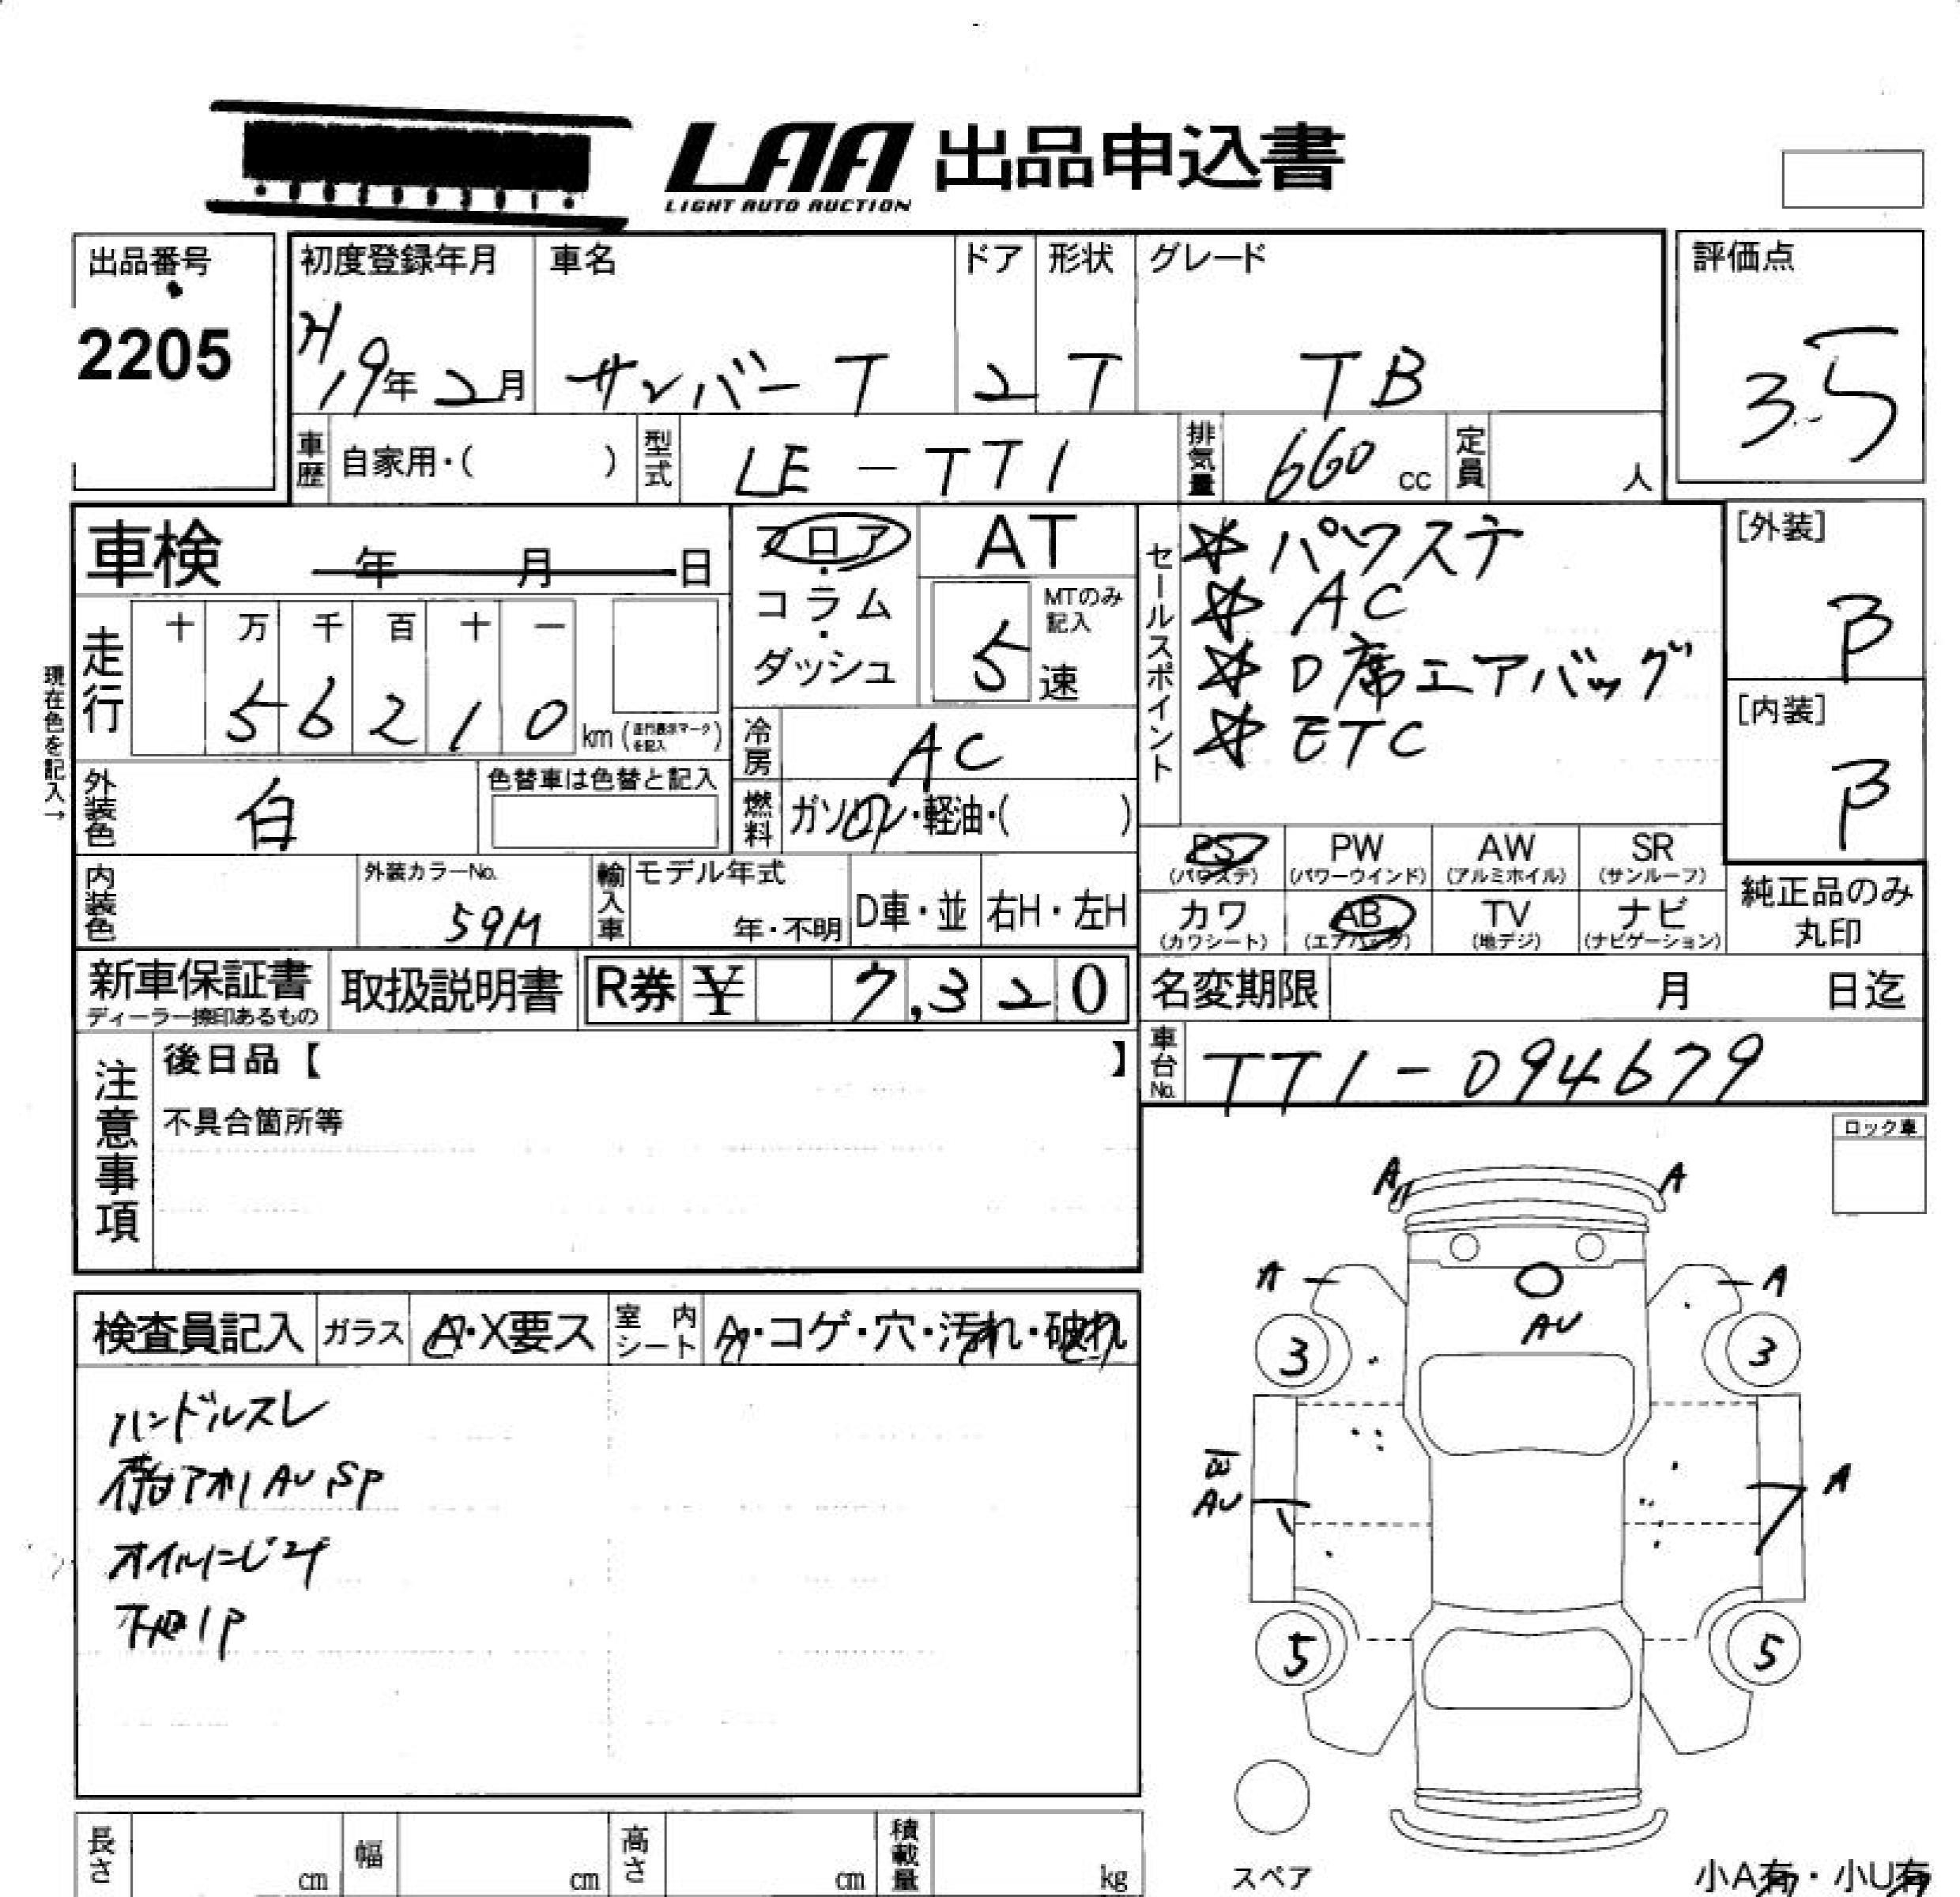 LAA 出品申込書
LIGHT AUTO AUCTION
出品番号
2205
初度登録年月
H19年2月
車名
サンバーT
ドア
2
形状
T
グレード
TB
評価点
3.5
車歴 自家用・( )
型式 LE-TT1
排気量 660cc
定員 人
車検 年 月 日
フロア・コラム・ダッシュ
AT
MTのみ記入
5速
セールスポイント
☆パワステ
☆AC
☆D席エアバッグ
☆ETC
[外装]
B
[内装]
B
現在色を記入→
走行
十 万 千 百 十 一
5 6 2 1 0 km (走行表示マークを記入)
冷房 AC
外装色 白
色替車は色替と記入
燃料 ガソリン・軽油・( )
PS (パワステ)
PW (パワーウインド)
AW (アルミホイル)
SR (サンルーフ)
カワ (カワシート)
AB (エアバック)
TV (地デジ)
ナビ (ナビゲーション)
純正品のみ丸印
内装色
外装カラーNo.
59M
輸入車
モデル年式
年・不明
D車・並
右H・左H
新車保証書
ディーラー捺印あるもの
取扱説明書
R券 ¥ 7,320
名変期限 月 日迄
車台No. TT1-094679
注意事項
後日品【 】
不具合箇所等
ロック車
検査員記入
ガラス A・X要ス
室内シート A・コゲ・穴・汚れ・破れ
ハンドルスレ
荷台アオリ AU SP
オイルにじみ
下回りP
A A
A A
AU
3 3
B
AU
A
5 5
スペア
小A有・小U有
長さ cm
幅 cm
高さ cm
積載量 kg